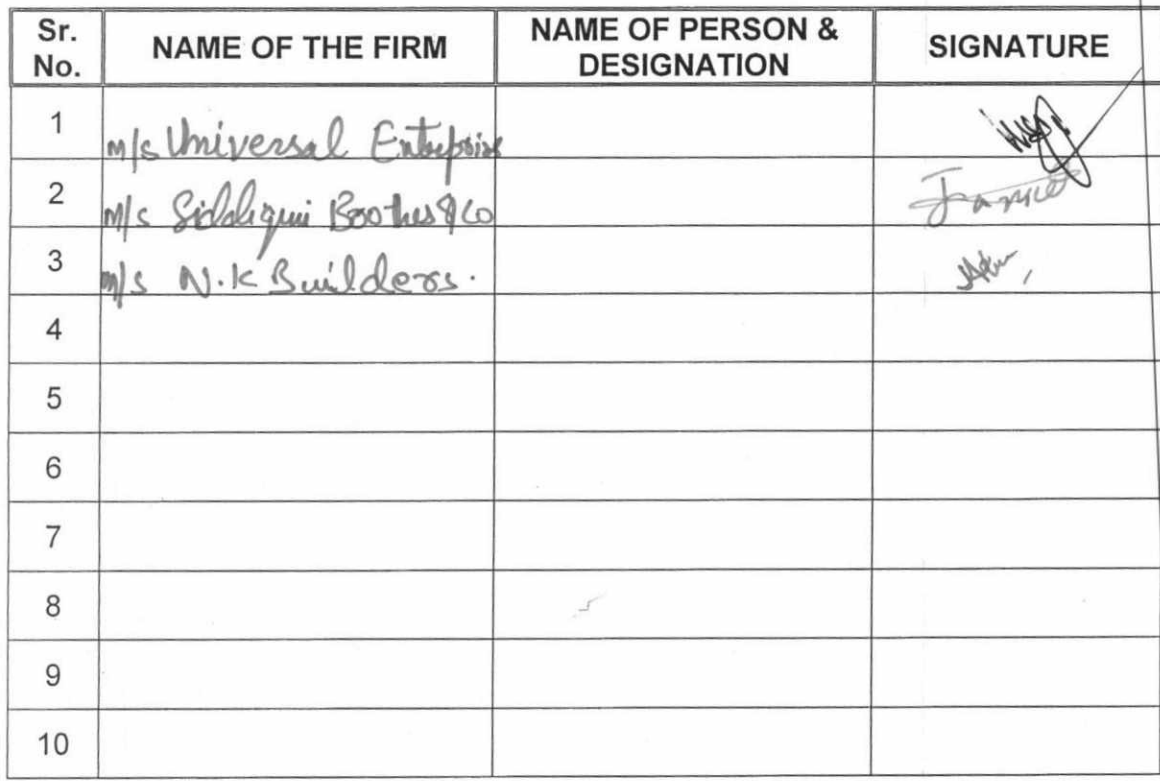 Sr. No. NAME OF THE FIRM NAME OF PERSON & DESIGNATION SIGNATURE
1 m/s Universal Enterprise
2 m/s Siddiqui Boothes & Co
3 m/s N.K Builders.
4
5
6
7
8
9
10